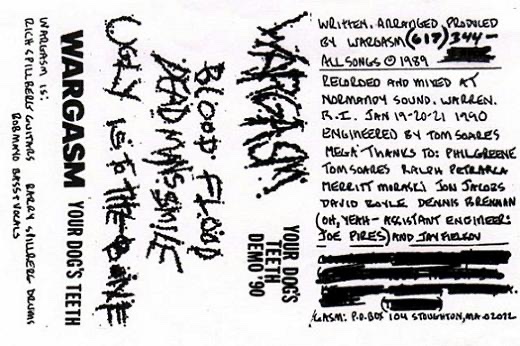 WARGASM IS:
RICH SPILLBERG GUITARS BARRY SPILLBERG DRUMS
BOB MAYO BASS & VOCALS
WARGASM YOUR DOG'S TEETH
UGLY IS TO THE BONE
DEAD MAN'S SMILE
BLOOD FLOOD
WARGASM
YOUR DOG'S
TEETH
DEMO '90
WRITTEN, ARRANGED, PRODUCED
BY WARGASM (617) 344-
ALL SONGS © 1989
RECORDED AND MIXED AT
NORMANDY SOUND, WARREN,
R.I. JAN 19-20-21 1990
ENGINEERED BY TOM SOARES
MEGA THANKS TO: PHIL GREENE
TOM SOARES RALPH PETRARCA
MERRITT JON JACOBS
DAVID BOYLE DENNIS BRENNAN
(OH, YEAH - ASSISTANT ENGINEER:
JOE PIRES) AND JAY FIELKOV
GASM: P.O. BOX 104 STOUGHTON, MA. 02072